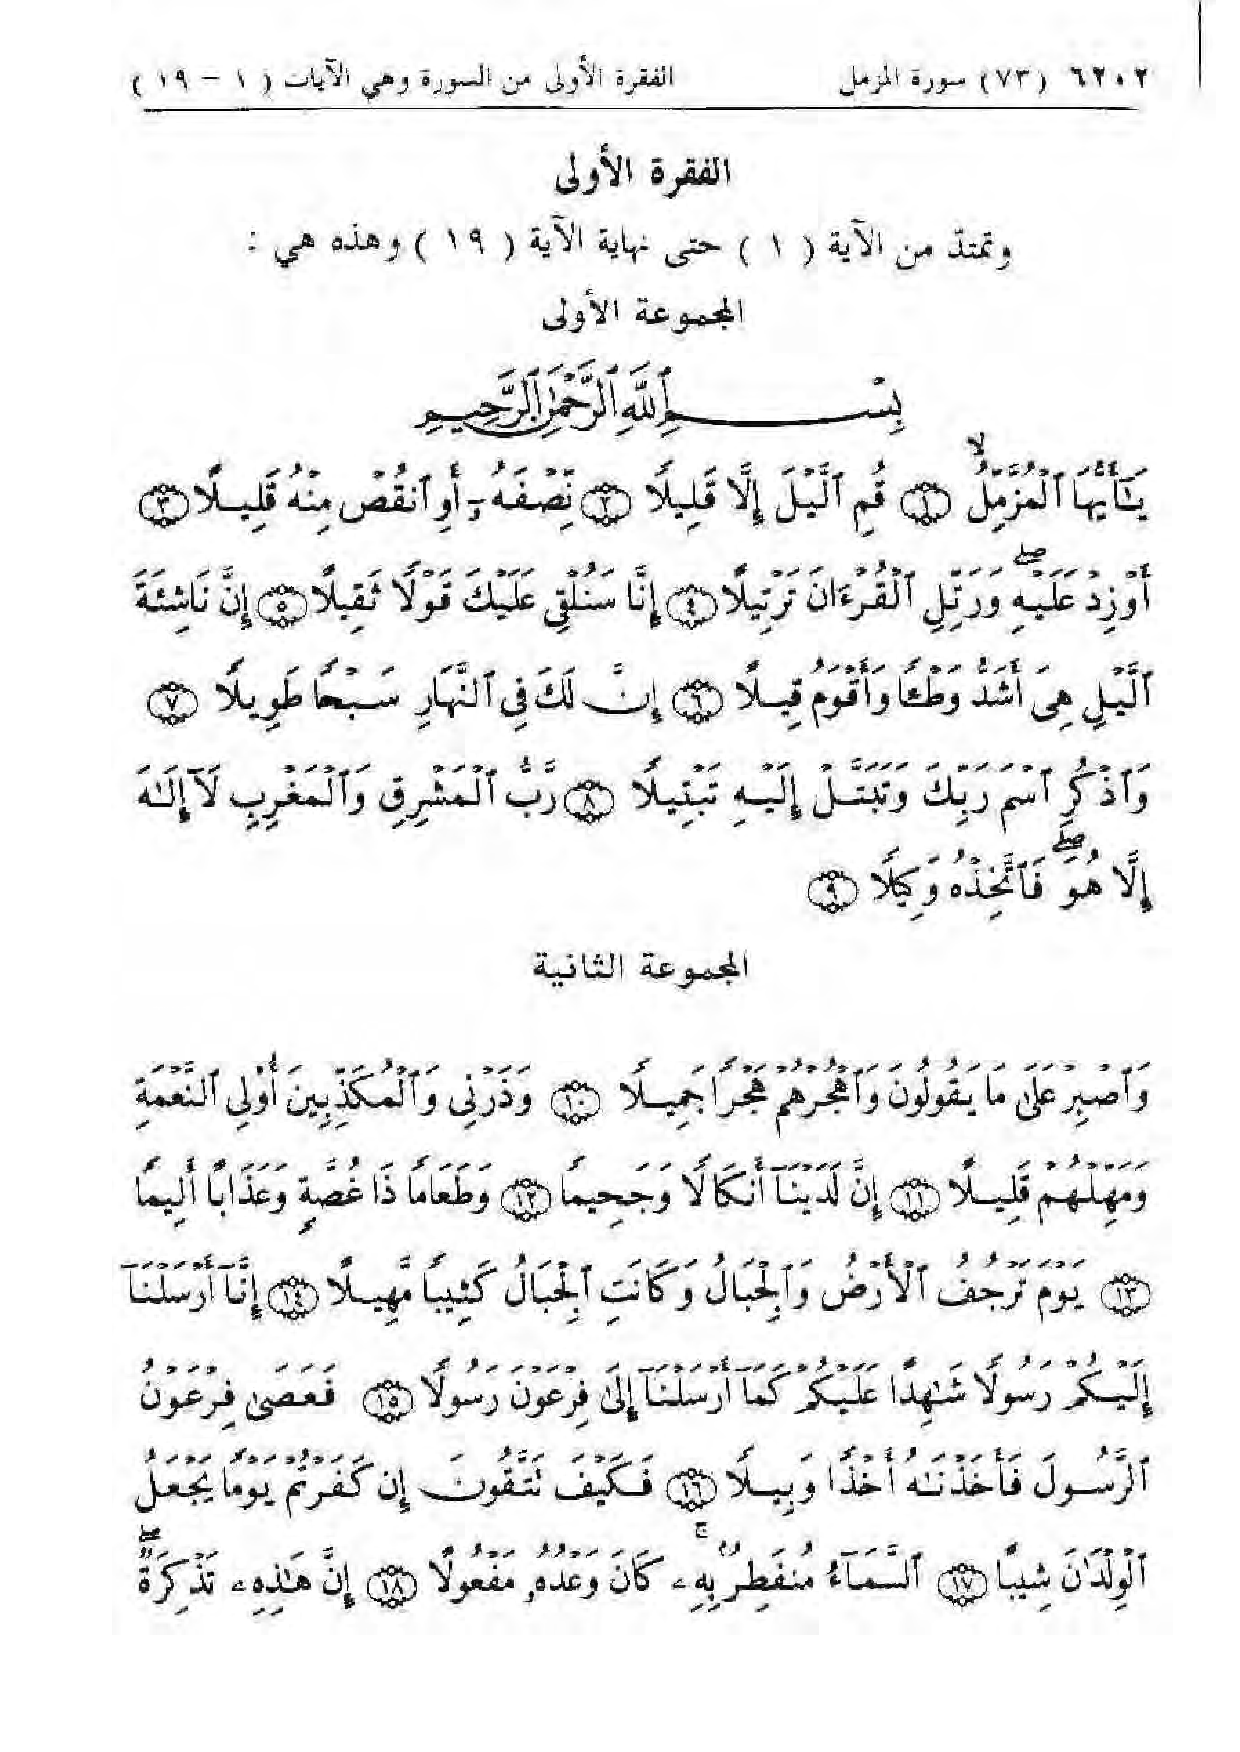 ٦٢٠٢ (٧٣) سورة المزمل الفقرة الأولى من السورة وهي الآيات ( ١ - ١٩ )
الفقرة الأولى
وتمتدّ من الآية ( ١ ) حتى نهاية الآية ( ١٩ ) وهذه هي :
المجموعة الأولى
بِسْمِ ٱللَّهِ ٱلرَّحْمَٰنِ ٱلرَّحِيمِ
يَٰٓأَيُّهَا ٱلْمُزَّمِّلُ ﴿١﴾ قُمِ ٱلَّيْلَ إِلَّا قَلِيلًا ﴿٢﴾ نِّصْفَهُۥٓ أَوِ ٱنقُصْ مِنْهُ قَلِيلًا ﴿٣﴾
أَوْ زِدْ عَلَيْهِ ۖ وَرَتِّلِ ٱلْقُرْءَانَ تَرْتِيلًا ﴿٤﴾ إِنَّا سَنُلْقِى عَلَيْكَ قَوْلًا ثَقِيلًا ﴿٥﴾ إِنَّ نَاشِئَةَ
ٱلَّيْلِ هِىَ أَشَدُّ وَطْـًٔا وَأَقْوَمُ قِيلًا ﴿٦﴾ إِنَّ لَكَ فِى ٱلنَّهَارِ سَبْحًا طَوِيلًا ﴿٧﴾
وَٱذْكُرِ ٱسْمَ رَبِّكَ وَتَبَتَّلْ إِلَيْهِ تَبْتِيلًا ﴿٨﴾ رَّبُّ ٱلْمَشْرِقِ وَٱلْمَغْرِبِ لَآ إِلَٰهَ
إِلَّا هُوَ ۖ فَٱتَّخِذْهُ وَكِيلًا ﴿٩﴾
المجموعة الثانية
وَٱصْبِرْ عَلَىٰ مَا يَقُولُونَ وَٱهْجُرْهُمْ هَجْرًا جَمِيلًا ﴿١٠﴾ وَذَرْنِى وَٱلْمُكَذِّبِينَ أُو۟لِى ٱلنَّعْمَةِ
وَمَهِّلْهُمْ قَلِيلًا ﴿١١﴾ إِنَّ لَدَيْنَآ أَنكَالًا وَجَحِيمًا ﴿١٢﴾ وَطَعَامًا ذَا غُصَّةٍ وَعَذَابًا أَلِيمًا
﴿١٣﴾ يَوْمَ تَرْجُفُ ٱلْأَرْضُ وَٱلْجِبَالُ وَكَانَتِ ٱلْجِبَالُ كَثِيبًا مَّهِيلًا ﴿١٤﴾ إِنَّآ أَرْسَلْنَآ
إِلَيْكُمْ رَسُولًا شَٰهِدًا عَلَيْكُمْ كَمَآ أَرْسَلْنَآ إِلَىٰ فِرْعَوْنَ رَسُولًا ﴿١٥﴾ فَعَصَىٰ فِرْعَوْنُ
ٱلرَّسُولَ فَأَخَذْنَٰهُ أَخْذًا وَبِيلًا ﴿١٦﴾ فَكَيْفَ تَتَّقُونَ إِن كَفَرْتُمْ يَوْمًا يَجْعَلُ
ٱلْوِلْدَٰنَ شِيبًا ﴿١٧﴾ ٱلسَّمَآءُ مُنفَطِرٌۢ بِهِۦ ۚ كَانَ وَعْدُهُۥ مَفْعُولًا ﴿١٨﴾ إِنَّ هَٰذِهِۦ تَذْكِرَةٌ ۖ